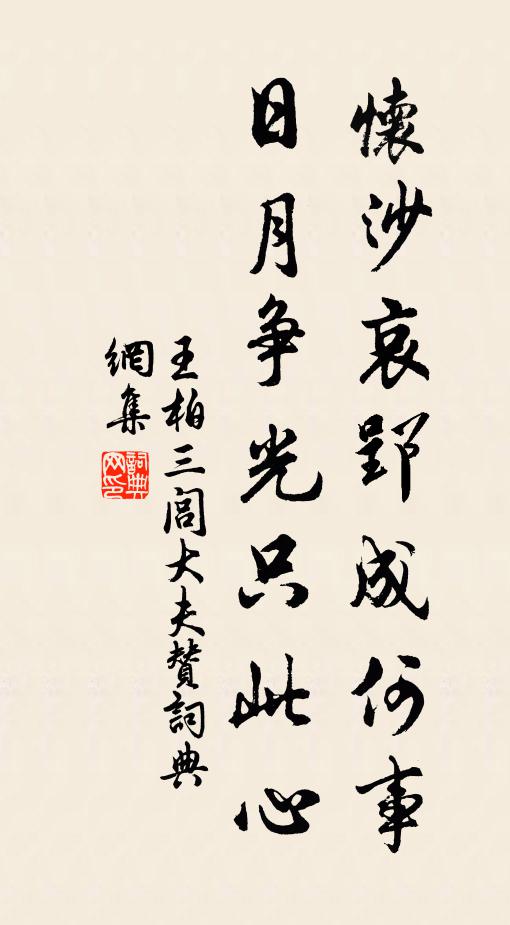 懷沙哀郢成何事
日月争光只此心
王柏三閭大夫贊詞典
網集
詞典網印